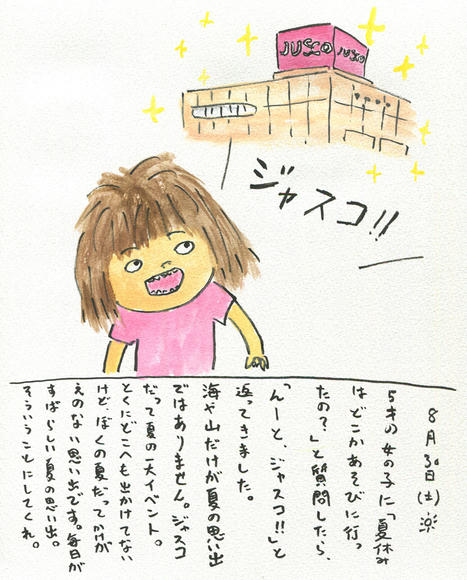 JUSCO JUSCO
ジャスコ!!
8月30日(土)
5才の女の子に「夏休み
はどこかあそびに行っ
たの?」と質問したら、
「んーと、ジャスコ!!」と
返ってきました。
海や山だけが夏の思い出
ではありません。ジャスコ
だって夏の一大イベント。
とくにどこへも出かけてない
けど、ぼくの夏だってかけが
えのない思い出です。毎日が
すばらしい夏の思い出。
そういうことにしてくれ。